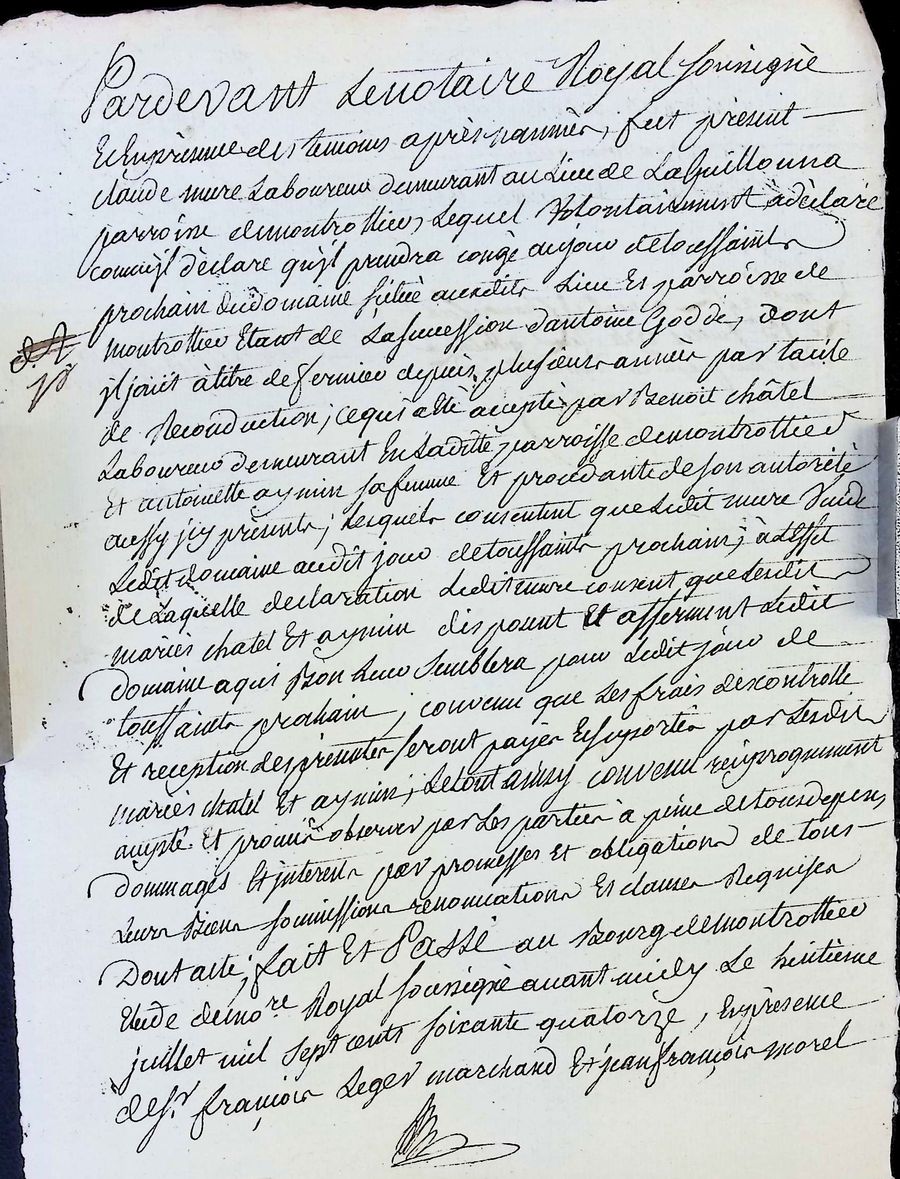 Pardevant Le notaire Royal soussigné
Et En présence des temoins après nommés, fut présent
claude mure Laboureur demeurant au Lieu de La Guillonna
parroisse de montrottier, Lequel volontairement a dèclaré
comme jl dèclare qu'jl prendra congé au jour de toussaints
prochain du domaine situé audit Lieu Et parroisse de
montrottier Etant de La succession d'antoine Godde, dont
jl jouit à titre de fermier depuis plusieurs années par tacite
de Reconduction; ce qui a eté accepté par Benoit châtel
Laboureur demeurant En Laditte parroisse de montrottier
Et antoinette aymin sa femme Et procédante de son autorité
aussy jcy présents; Lesquels consentent que Ledit mure vuide
Ledit domaine audit jour de toussaints prochain; à L'effet
de Laquelle declaration Ledit mure consent que Lesdits
mariés chatel Et aymin disposent Et afferment Ledit
domaine a qui Bon Leur semblera pour Ledit jour de
toussaints prochain; convenu que Les frais de controlle
Et reception des présentes seront payés Et suportés par Lesdits
mariés chatel Et aymin; Le tout ainsy convenu réciproquement
accepté Et promis observer par Les parties à peine de tous depens,
dommages Et interets par promesses Et obligations de tous
Leurs Biens soumissions renonciations Et clauses Requises
Dont acte; fait Et Passé au Bourg de montrottier
Etude de no.re Royal soussigné avant midy Le huitieme
juillet mil sept cents soixante quatorze, En présence
de S.r françois Leger marchand Et jean françois morel